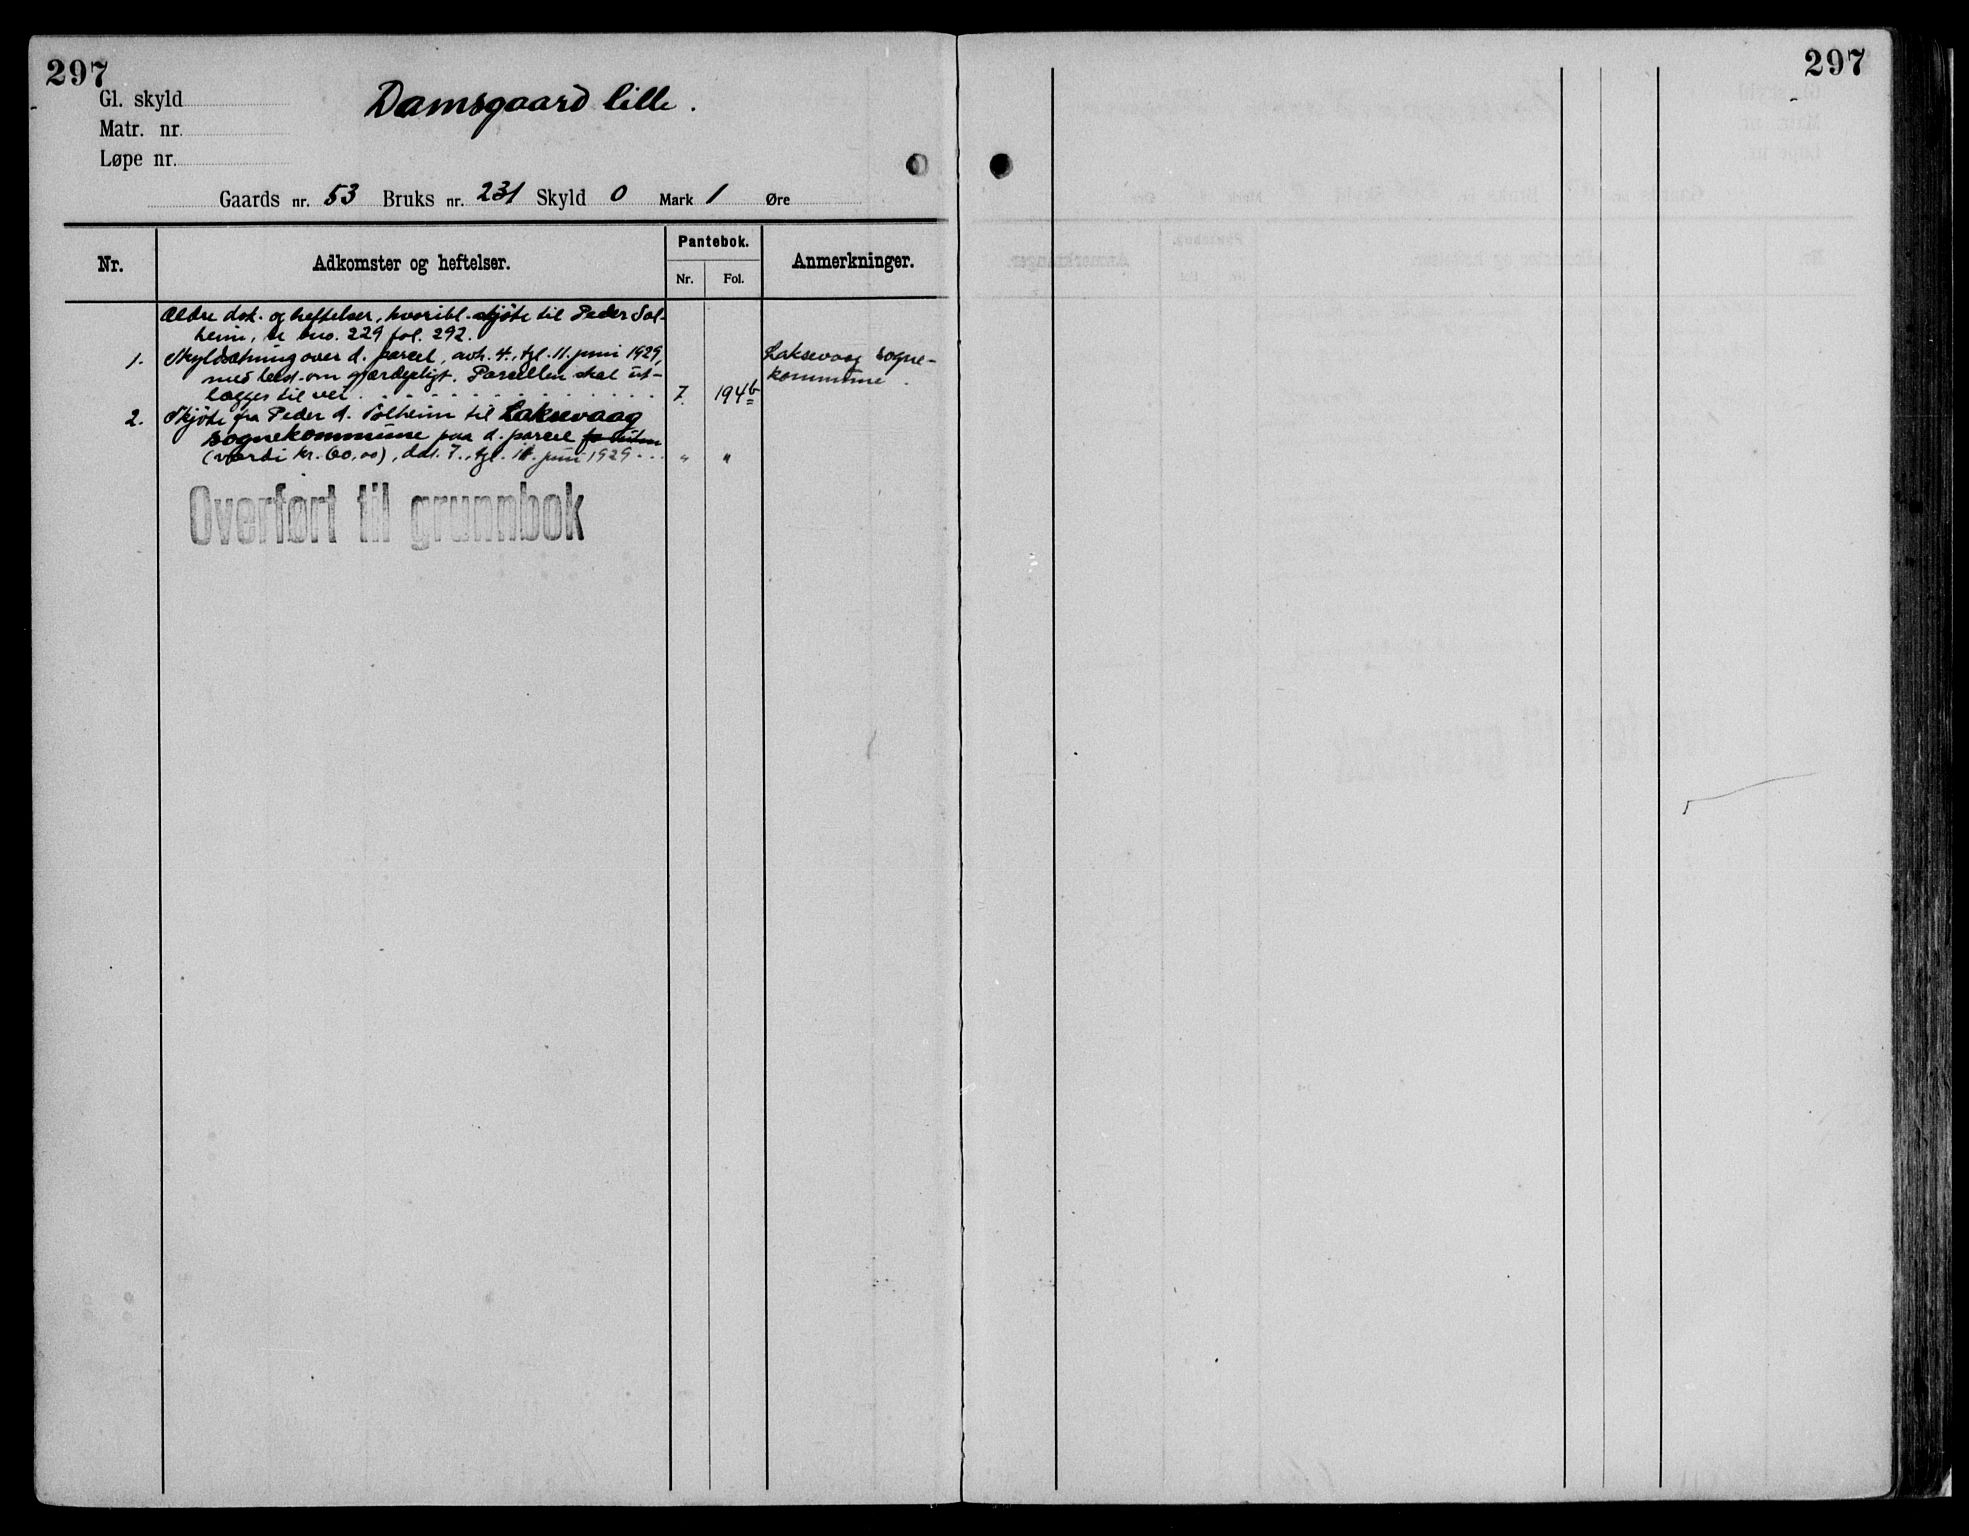 297
Gl. skyld
Damsgaard lille.
Matr. nr.
Løpe nr.
Gaards nr. 53 Bruks nr. 231 Skyld 0 Mark 1 Øre
Nr. Adkomster og heftelser. Pantebok. Anmerkninger.
Nr. Fol.
Ældre dok. og heftelser, hvoribl. skjøte til Peder Sol-
heim, se bno. 229 fol. 292.
1. Skyldsætning over d. parcel, avh. 4., tgl. 11. juni 1929,
med best. om gjærdepligt. Parcellen skal ut-
lægges til vei . . . . . . . . . . . . . . 7. 194b
Laksevaag sogne-
kommune.
2. Skjøte fra Peder d. Solheim til Laksevaag
sognekommune paa d. parcel
(værdi kr. 60,00), dat. 7., tgl. 11. juni 1929 . . . " "
Overført til grunnbok
297